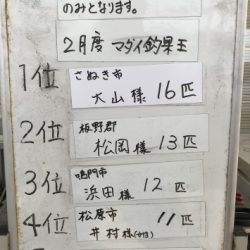 のみとなります。
2月度 マダイ釣果王
1位 さぬき市
大山様 16匹
2位 板野郡
松岡様 13匹
3位 鳴門市
浜田様 12匹
4位 松原市 11匹
井村様